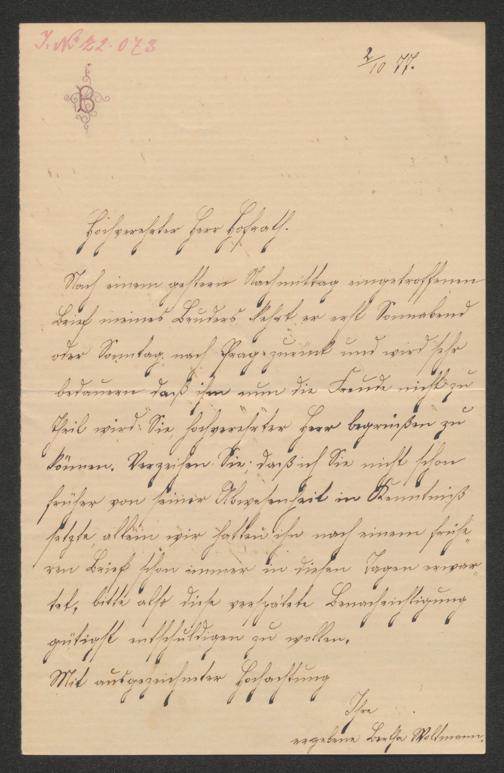 I. N. 22.073
2/10 77.
B
Hochverehrter Herr Hofrath.
Nach einem gestern Nachmittag eingetroffenen
Brief meines Bruders kehrt er erst Sonnabend
oder Sonntag nach Prag zurück und wird sehr
bedauern daß ihm nun die Freude nicht zu
Theil wird Sie hochverehrter Herr begrüßen zu
können. Verzeihen Sie, daß ich Sie nicht schon
früher von seiner Abwesenheit in Kenntniß
setzte allein wir hatten ihn nach einem frühe-
ren Brief schon immer in diesen Tagen erwar-
tet, bitte also diese verspätete Benachrichtigung
gütigst entschuldigen zu wollen.
Mit ausgezeichneter Hochachtung
Ihre
ergebene Bertha Woltmann.